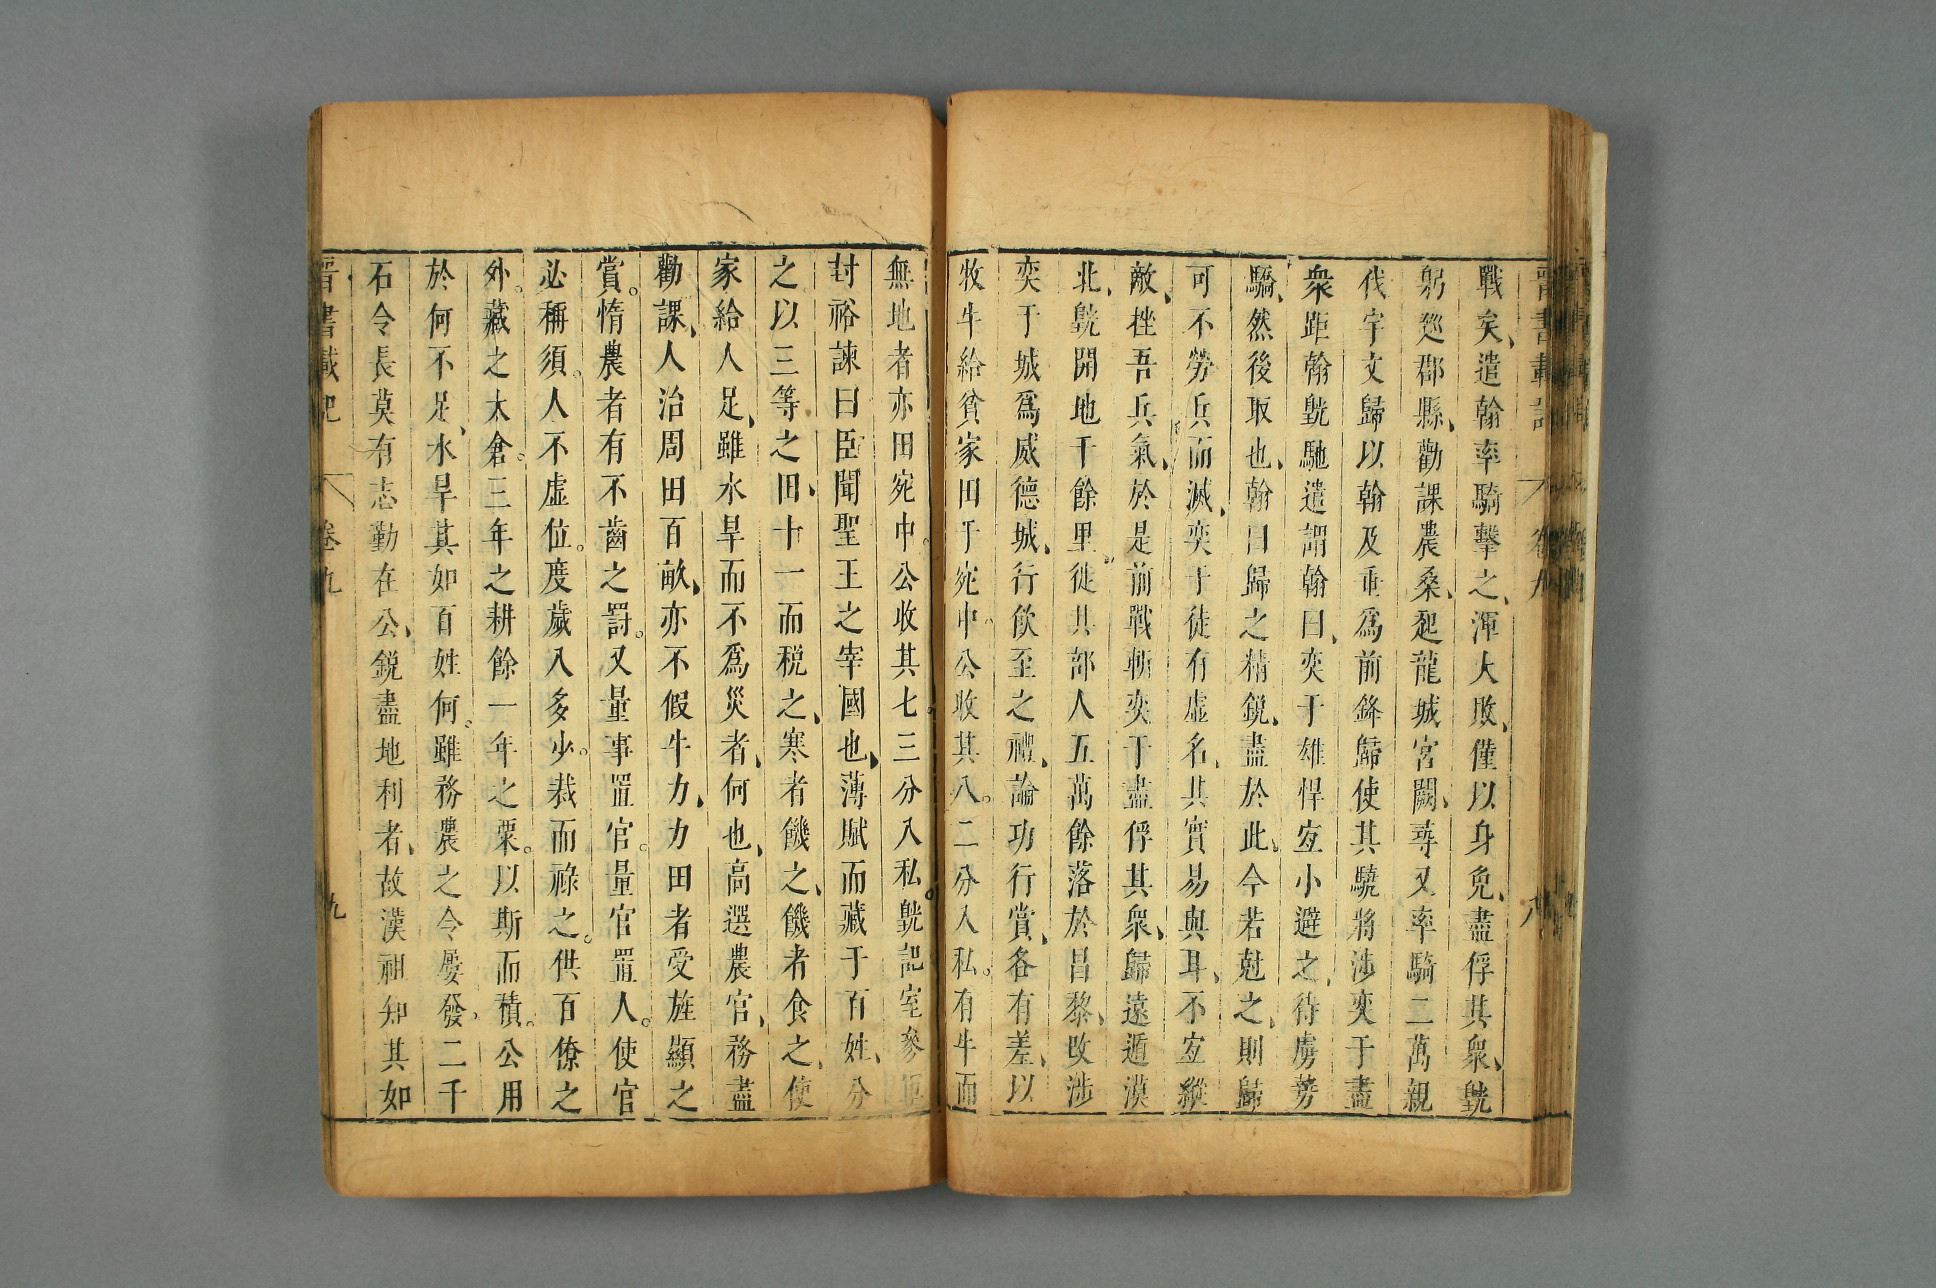 晉書載記 卷九 八
戰矣、遣翰率騎擊之、渾大敗、僅以身免、盡俘其衆、皝
躬廵郡縣、勸課農桑、起龍城宮闕、尋又率騎二萬親
伐宇文歸以翰及垂爲前鋒歸使其驍將涉奕于盡
衆距翰皝馳遣謂翰曰、奕于雄悍宐小避之、待虜勢
驕、然後取也、翰曰歸之精銳、盡於此、今若尅之、則歸
可不勞兵而滅、奕于徒有虛名、其實易與耳、不宐縱
敵、挫吾兵氣、於是前戰斬奕于盡俘其衆、歸遠遁漠
北、皝開地千餘里。徙其部人五萬餘落於昌黎、改涉
奕于城爲威德城、行飲至之禮、論功行賞、各有差、以
牧牛給貧家田于宛中。公收其八。二分入私。有牛而
無地者亦田宛中。公收其七。三分入私。皝記室參軍
封裕諫曰臣聞聖王之宰國也、薄賦而藏于百姓、分
之以三等之田、十一而稅之、寒者衣之、饑者食之、使
家給人足、雖水旱而不爲災者、何也、高選農官、務盡
勸課、人治周田百畝、亦不假牛力、力田者受旌顯之
賞。惰農者有不齒之罰。又量事置官。量官置人。使官
必稱須。人不虛位。度歲入多少。裁而祿之。供百僚之
外。藏之太倉。三年之耕餘一年之粟。以斯而積。公用
於何不足、水旱其如百姓何。雖務農之令屢發。二千
石令長莫有志勤在公、銳盡地利者、故漢祖知其如
晉書載記 卷九 九